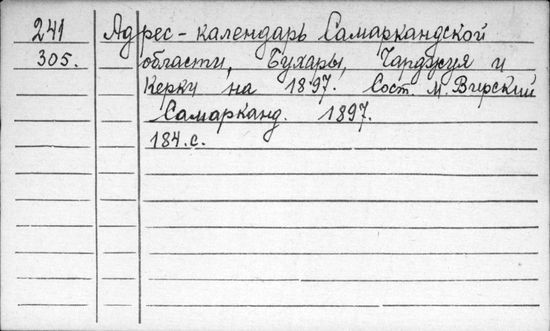 241 Адрес-календарь Самаркандской
305. области, Бухары, Чарджуя и
Керку на 1897. Сост. М. Вирский
Самарканд. 1897.
184.с.